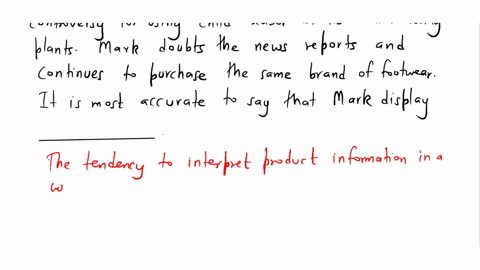 plants. Mark doubts the news reports and
continues to purchase the same brand of footwear.
It is most accurate to say that Mark display
The tendency to interpret product information in a
w